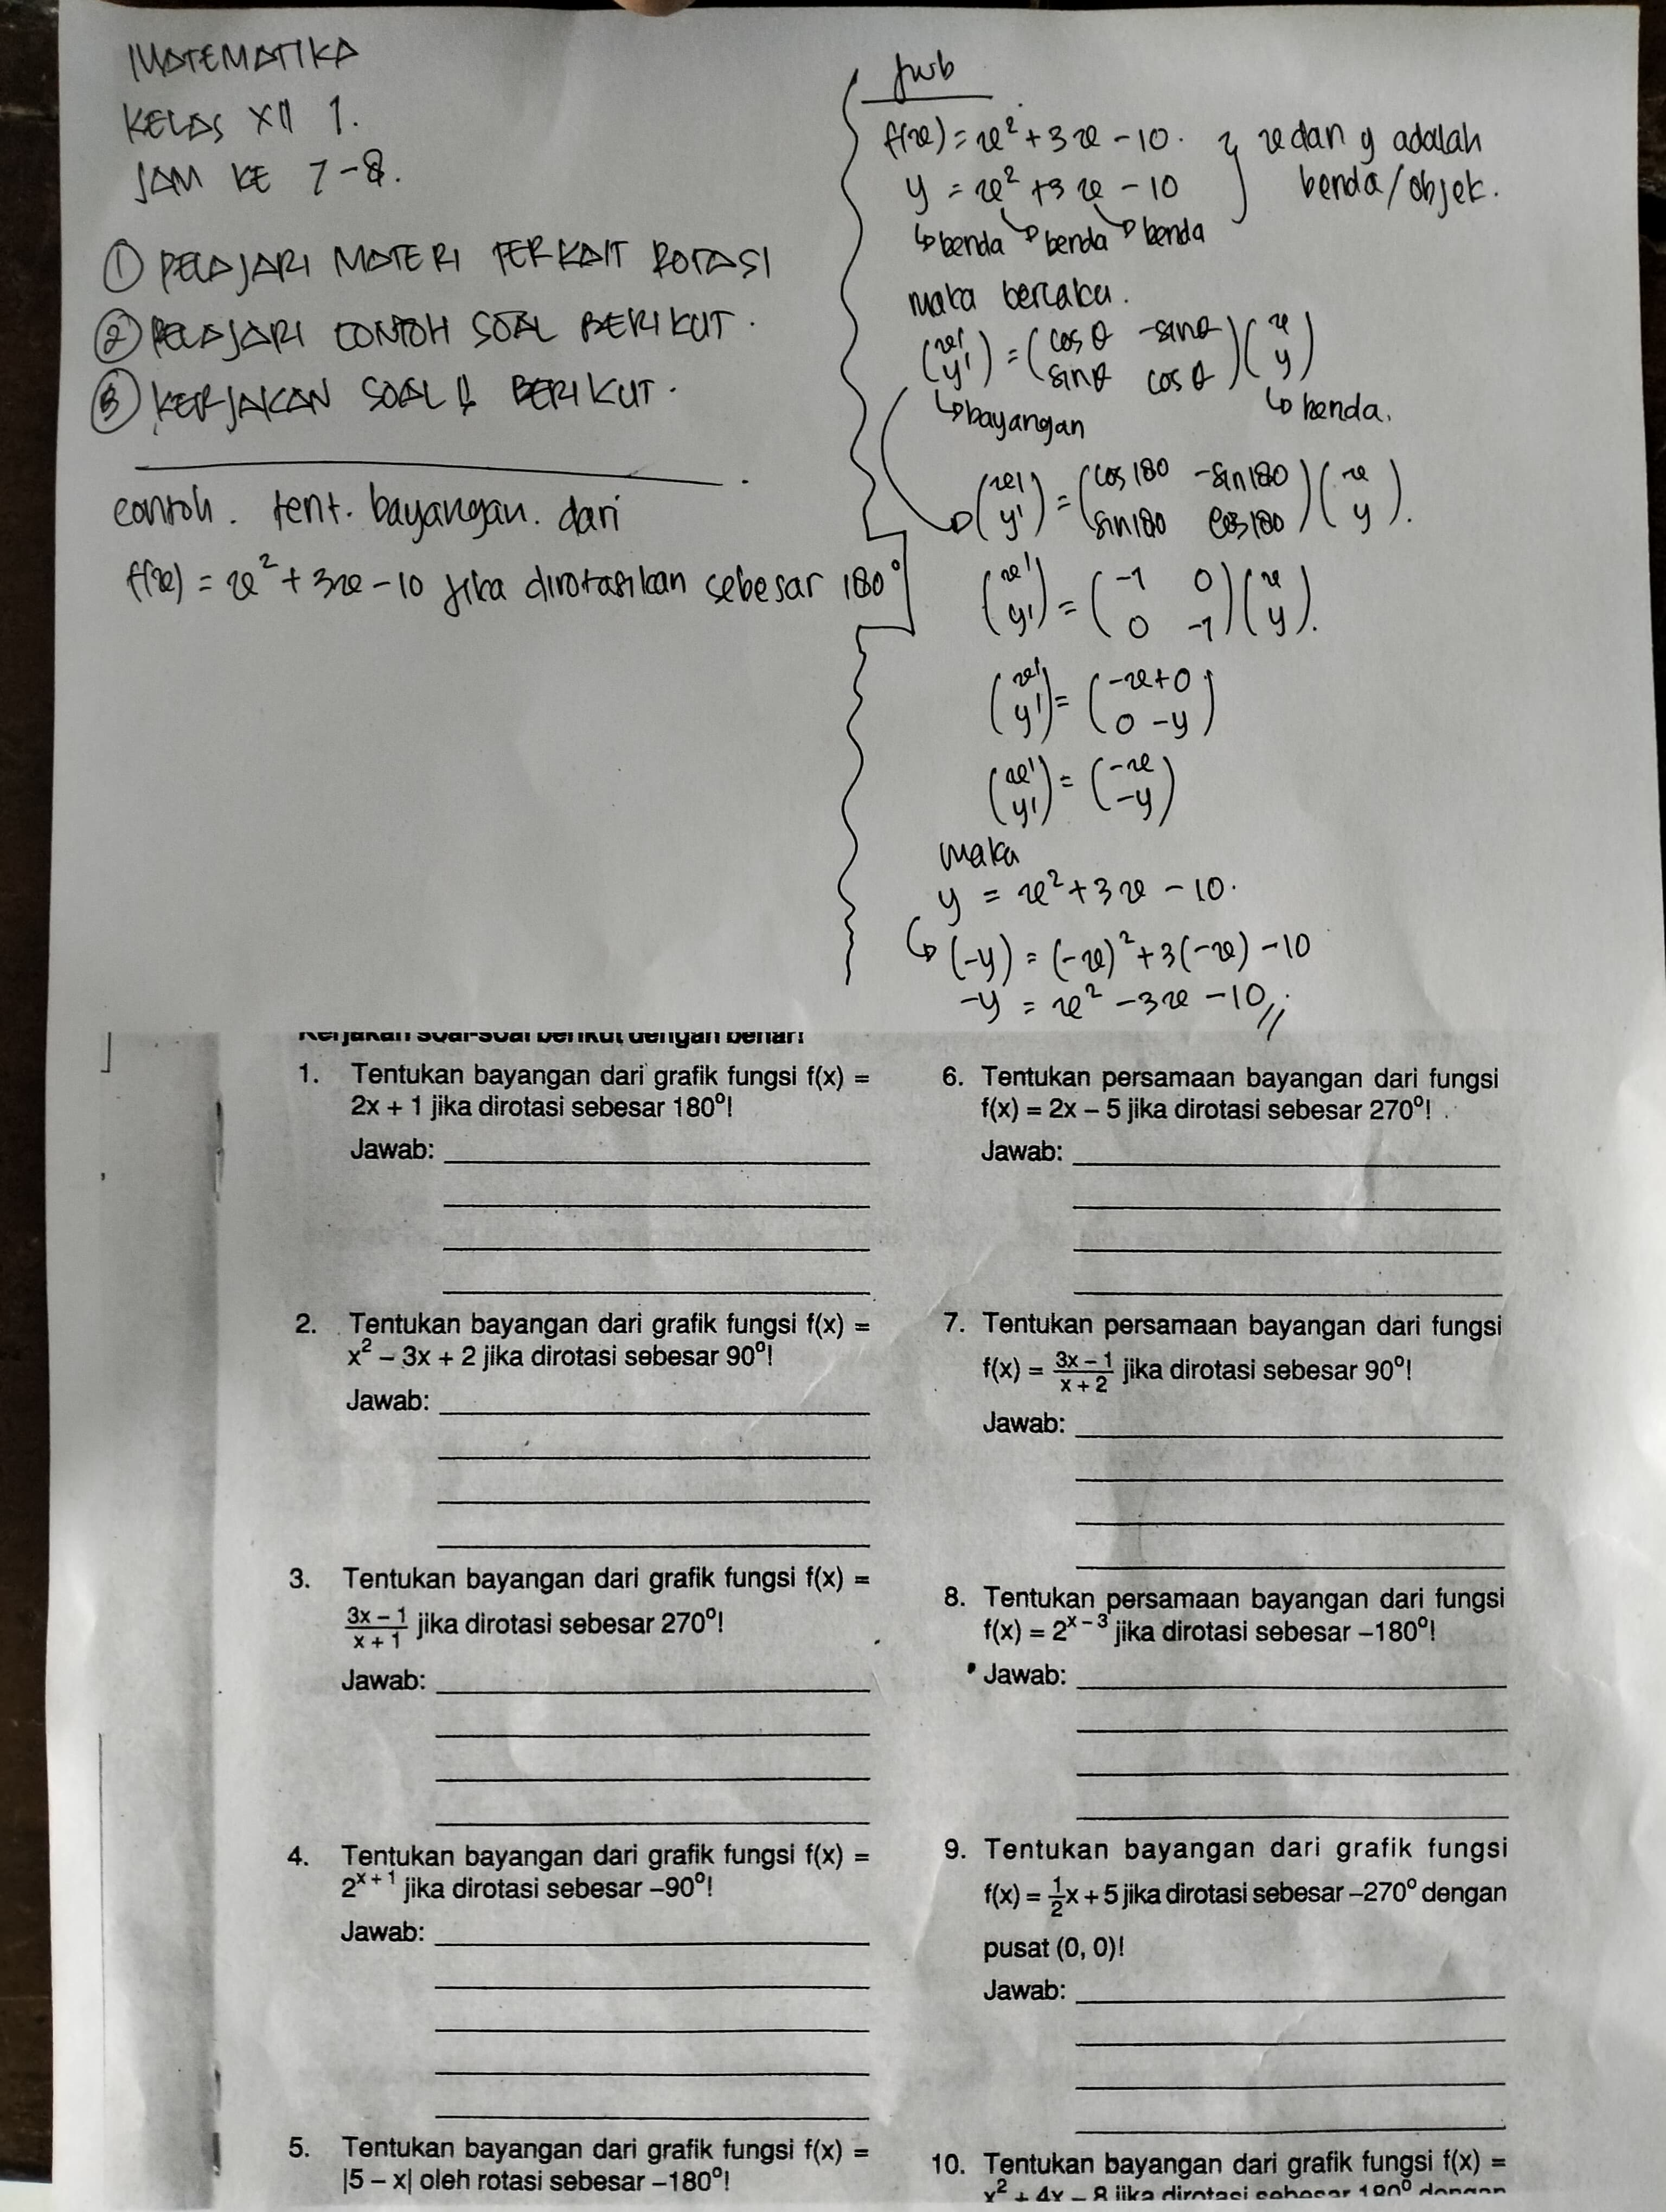 MATEMATIKA
KELAS XII 1.
JAM KE 7-8.
① PELAJARI MATERI TERKAIT ROTASI
② PELAJARI CONTOH SOAL BERIKUT.
③ KERJAKAN SOAL BERIKUT.
contoh. tent. bayangan. dari
f(x) = x² + 3x - 10 jika dirotasikan sebesar 180°
Jwb
f(x) = x² + 3x - 10. } x dan y adalah
y = x² + 3x - 10 benda/objek.
↳ benda ↳ benda ↳ benda
maka berlaku.
(x' y') = (cos θ -sin θ sin θ cos θ)(x y)
↳ bayangan ↳ benda.
(x' y') = (cos 180 -sin 180 sin 180 cos 180)(x y).
(x' y') = (-1 0 0 -1)(x y).
(x' y') = (-x+0 0-y)
(x' y') = (-x -y)
maka
y = x² + 3x - 10.
↳ (-y) = (-x)² + 3(-x) - 10
-y = x² - 3x - 10 //
Kerjakan soal-soal berikut dengan benar!
1. Tentukan bayangan dari grafik fungsi f(x) =
2x + 1 jika dirotasi sebesar 180°!
Jawab:
2. Tentukan bayangan dari grafik fungsi f(x) =
x² – 3x + 2 jika dirotasi sebesar 90°!
Jawab:
3. Tentukan bayangan dari grafik fungsi f(x) =
3x – 1 / x + 1 jika dirotasi sebesar 270°!
Jawab:
4. Tentukan bayangan dari grafik fungsi f(x) =
2ˣ⁺¹ jika dirotasi sebesar –90°!
Jawab:
5. Tentukan bayangan dari grafik fungsi f(x) =
|5 – x| oleh rotasi sebesar –180°!
6. Tentukan persamaan bayangan dari fungsi
f(x) = 2x – 5 jika dirotasi sebesar 270°!
Jawab:
7. Tentukan persamaan bayangan dari fungsi
f(x) = 3x – 1 / x + 2 jika dirotasi sebesar 90°!
Jawab:
8. Tentukan persamaan bayangan dari fungsi
f(x) = 2ˣ⁻³ jika dirotasi sebesar –180°!
Jawab:
9. Tentukan bayangan dari grafik fungsi
f(x) = ½x + 5 jika dirotasi sebesar –270° dengan
pusat (0, 0)!
Jawab:
10. Tentukan bayangan dari grafik fungsi f(x) =
x² + 4x – 8 jika dirotasi sebesar 180° dengan